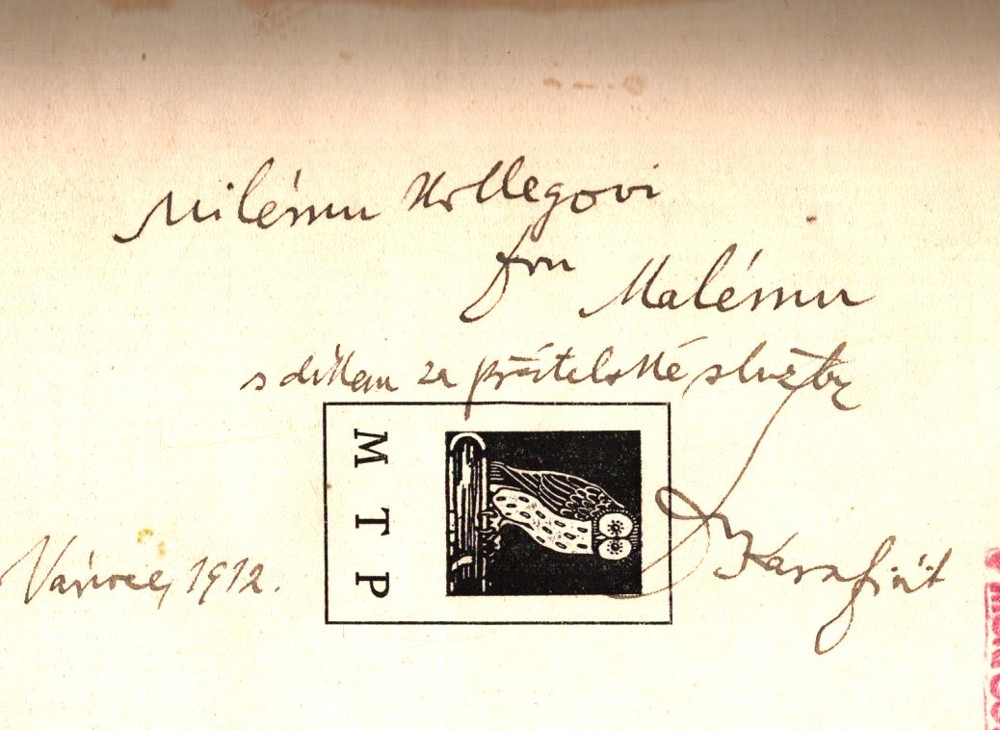 Milému kollegovi
fru Malému
s díkem za přátelské služby
MTP
Vánoce, 1912.
Karafiát